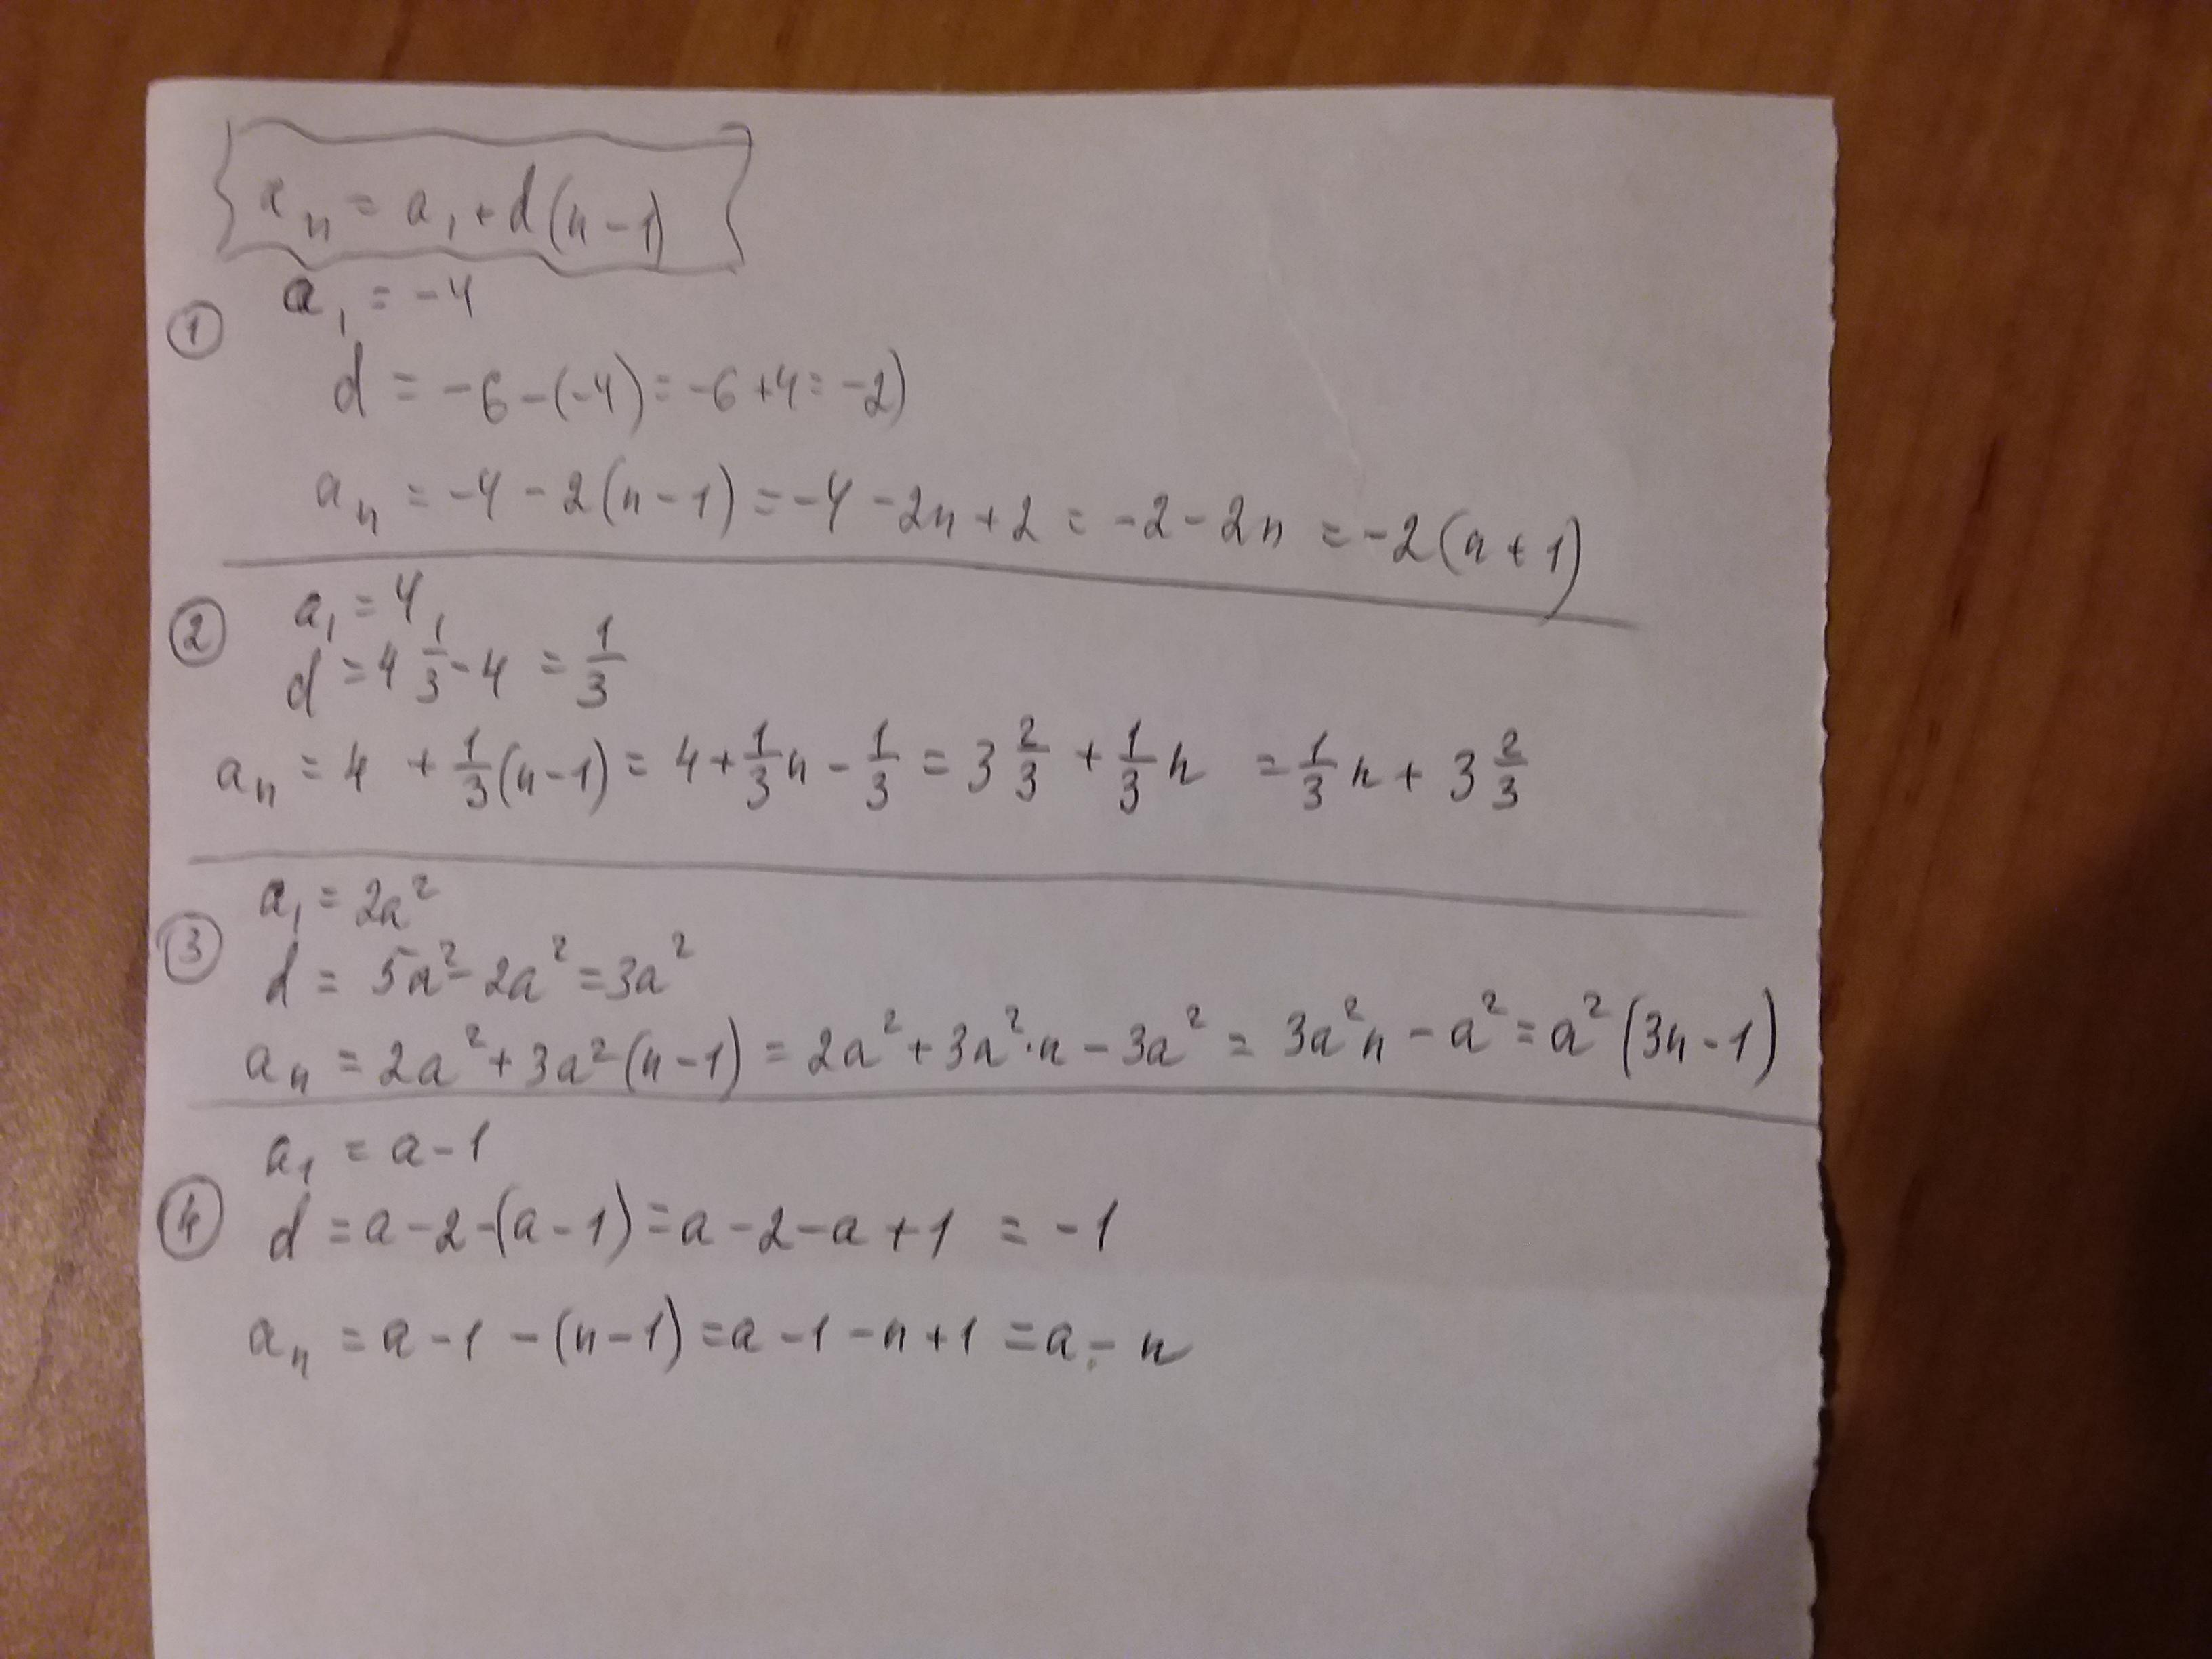 aₙ = a₁ + d(n-1)
① a₁ = -4
d = -6-(-4) = -6+4 = -2)
aₙ = -4 - 2(n-1) = -4 - 2n + 2 = -2 - 2n = -2(n+1)
② a₁ = 4
d = 4 1/3 - 4 = 1/3
aₙ = 4 + 1/3(n-1) = 4 + 1/3n - 1/3 = 3 2/3 + 1/3n = 1/3n + 3 2/3
③ a₁ = 2a²
d = 5a² - 2a² = 3a²
aₙ = 2a² + 3a²(n-1) = 2a² + 3a²·n - 3a² = 3a²n - a² = a²(3n-1)
④ a₁ = a-1
d = a-2-(a-1) = a-2-a+1 = -1
aₙ = a-1-(n-1) = a-1-n+1 = a-n